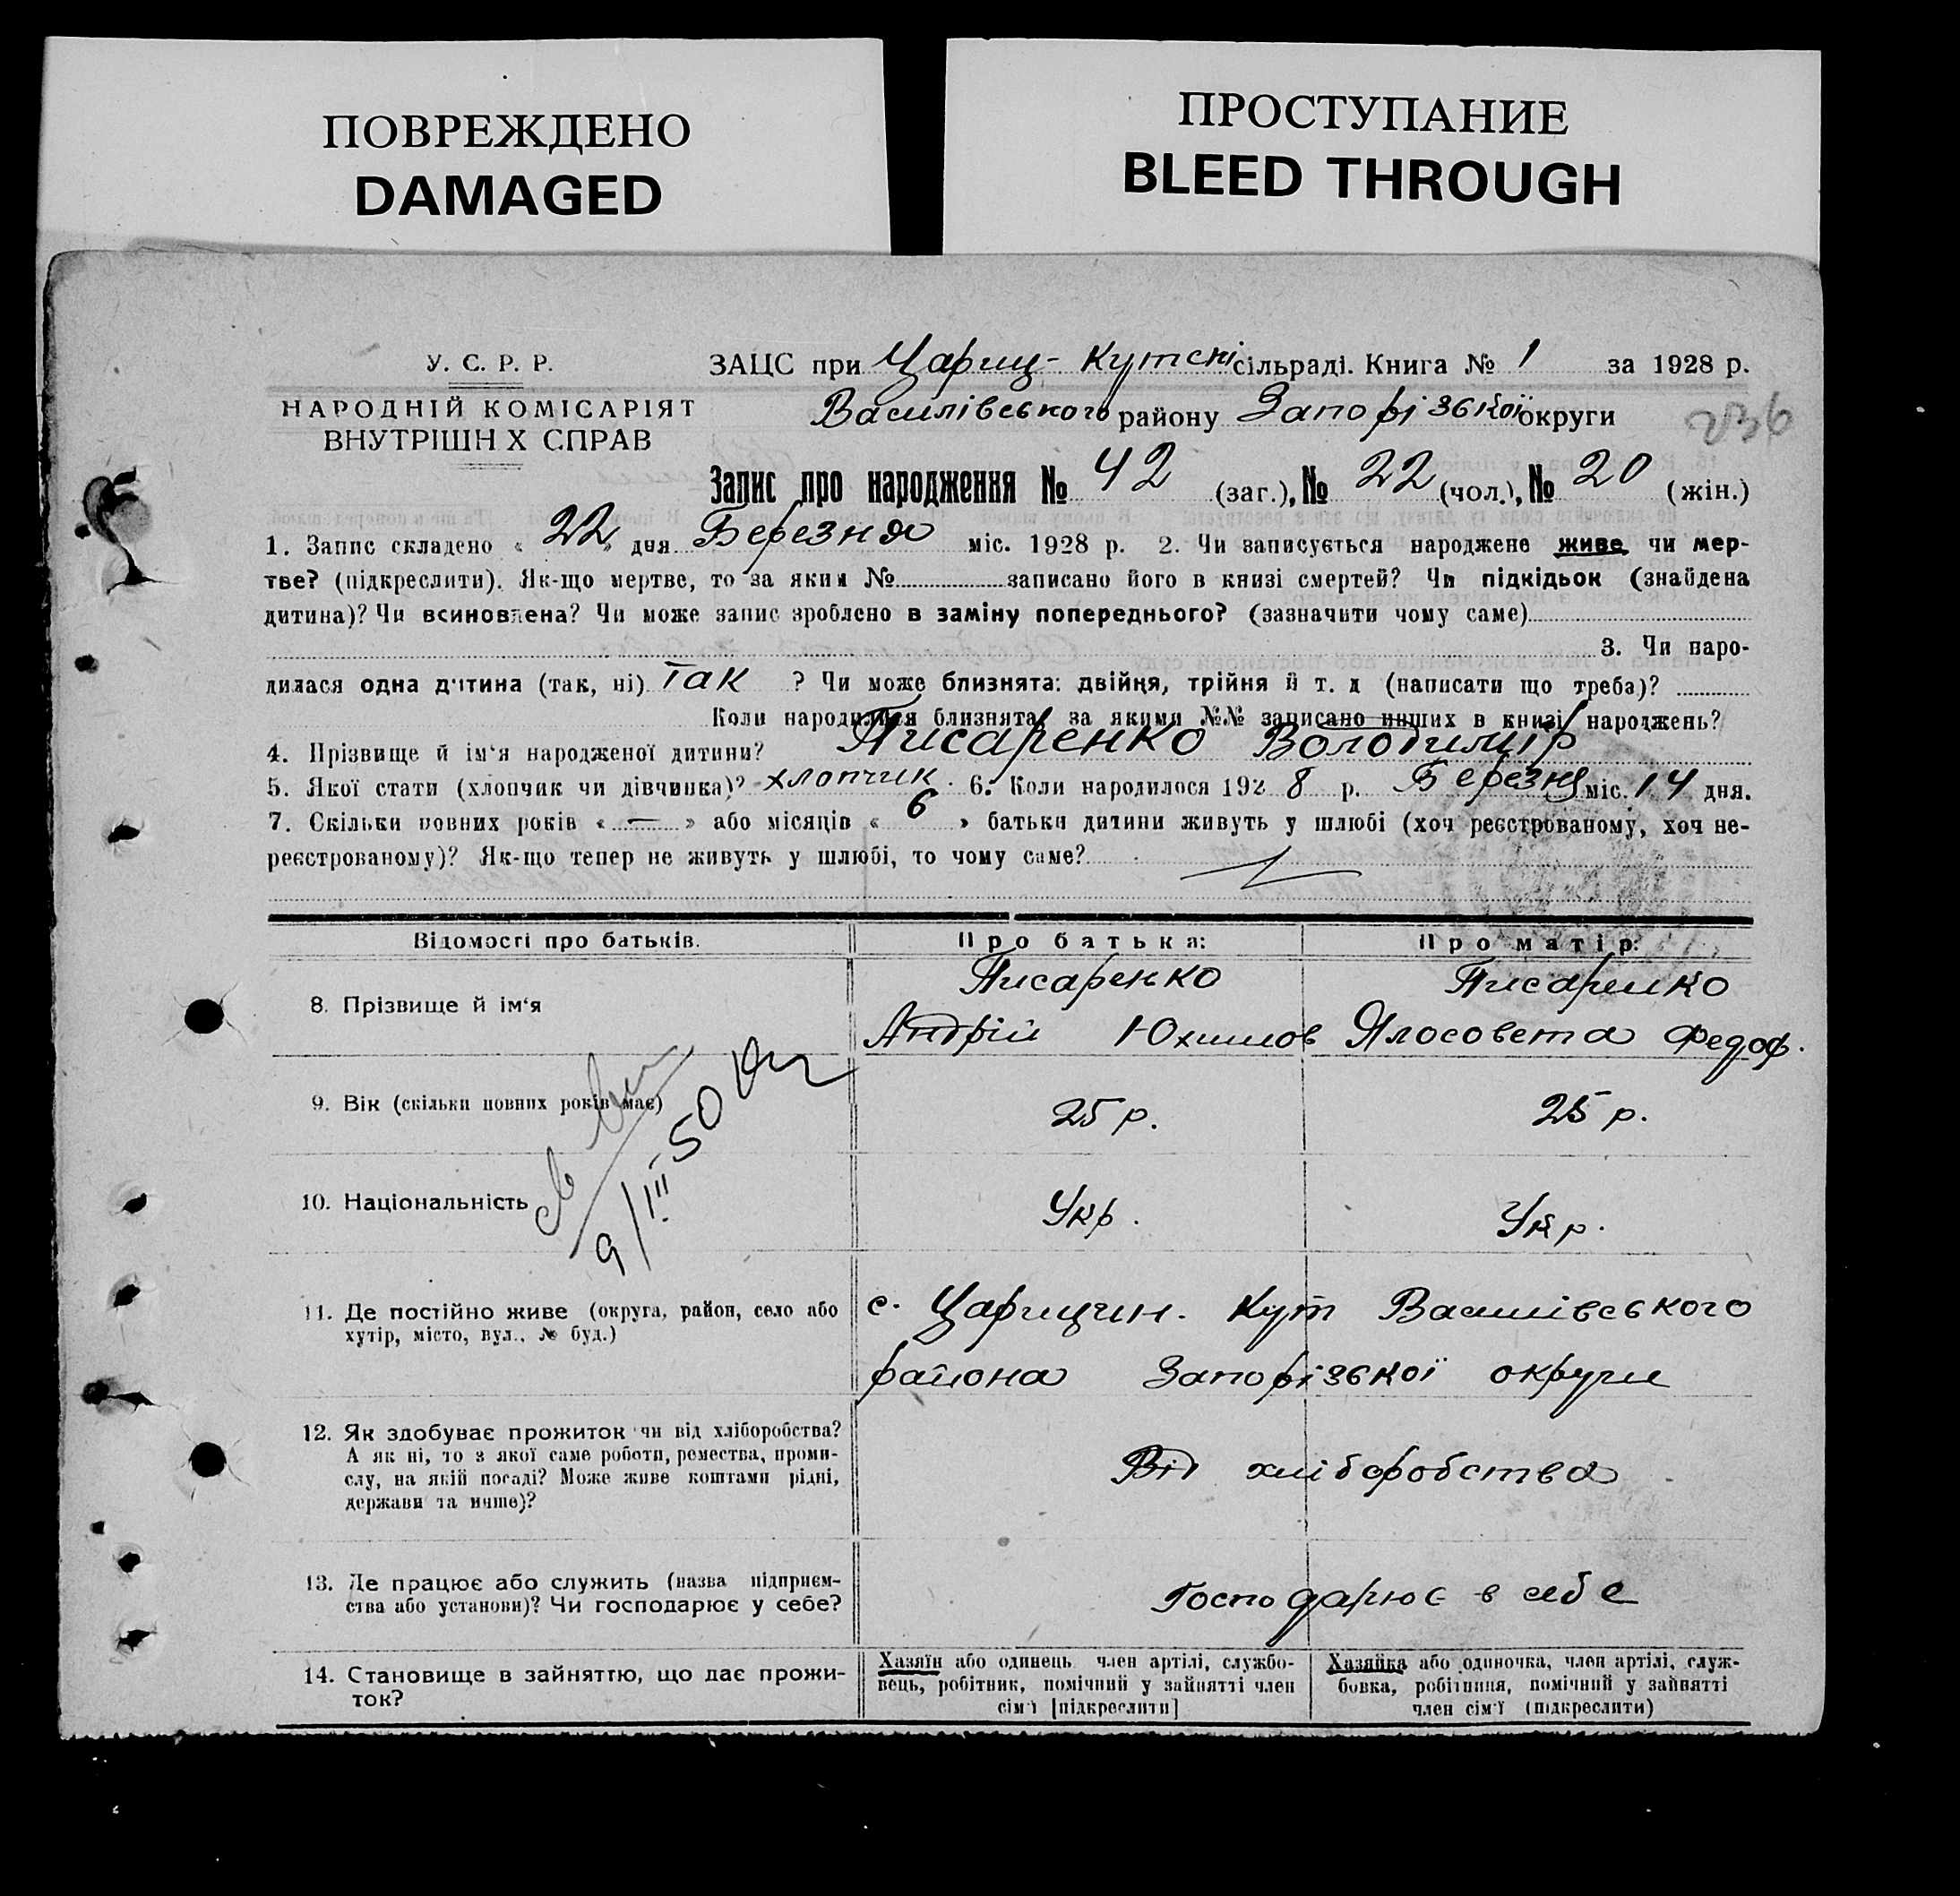 ПОВРЕЖДЕНО
DAMAGED
ПРОСТУПАНИЕ
BLEED THROUGH
У. С. Р. Р.
НАРОДНІЙ КОМІСАРІЯТ
ВНУТРІШН Х СПРАВ
ЗАЦС при Цариц- Кутскі сільраді. Книга № 1 за 1928 р.
Василівського району Запорізької округи
236
Запис про народження № 42 (заг.), № 22 (чол.), № 20 (жін.)
1. Запис складено « 22 » дня Березня міс. 1928 р. 2. Чи записується народжене живе чи мер-
тве? (підкреслити). Як-що мертве, то за яким № записано його в книзі смертей? Чи підкідьок (знайдена
дитина)? Чи всиновлена? Чи може запис зроблено в заміну попереднього? (зазначити чому саме)
3. Чи наро-
дилася одна дитина (так, ні) так ? Чи може близнята: двійня, трійня й т. д (написати що треба)?
Коли народилися близнята, за якими №№ записано инших в книзі народжень?
4. Прізвище й ім'я народженої дитини? Писаренко Володимир
5. Якої стати (хлопчик чи дівчинка)? хлопчик. 6. Коли народилося 192 8 р. Березня міс. 14 дня.
7. Скільки повних років « — » або місяців « 6 » батьки дитини живуть у шлюбі (хоч реєстрованому, хоч не-
реєстрованому)? Як-що тепер не живуть у шлюбі, то чому саме?
Відомості про батьків.
Про батька:
Про матір:
8. Прізвище й ім'я
Писаренко
Андрій Юхимов
Писаренко
Ялосовета Федор.
9. Вік (скільки повних років має)
25 р.
25 р.
9/III 50
10. Національність
Укр.
Укр.
11. Де постійно живе (округа, район, село або
хутір, місто, вул., № буд.)
с. Царицин. Кут Василівського
района Запорізької округи
12. Як здобуває прожиток чи від хліборобства?
А як ні, то з якої саме роботи, ремества, проми-
слу, на якій посаді? Може живе коштами рідні,
держави та инше)?
Від хліборобства
13. Де працює або служить (назва підприєм-
ства або установи)? Чи господарює у себе?
Господарює в себе
14. Становище в зайняттю, що дає прожи-
ток?
Хазяїн або одинець член артілі, службо-
вець, робітник, помічний у зайнятті член
сім'ї [підкреслити]
Хазяйка або одиночка, член артілі, служ-
бовка, робітниця, помічний у зайнятті
член сім'ї (підкреслити)